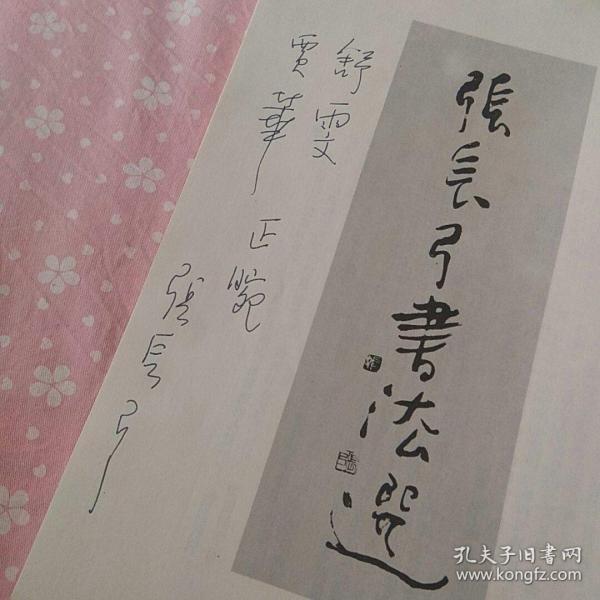 張長弓書法選
舒雯
賈華 正腕
張長弓
孔夫子旧书网
www.kongfz.com